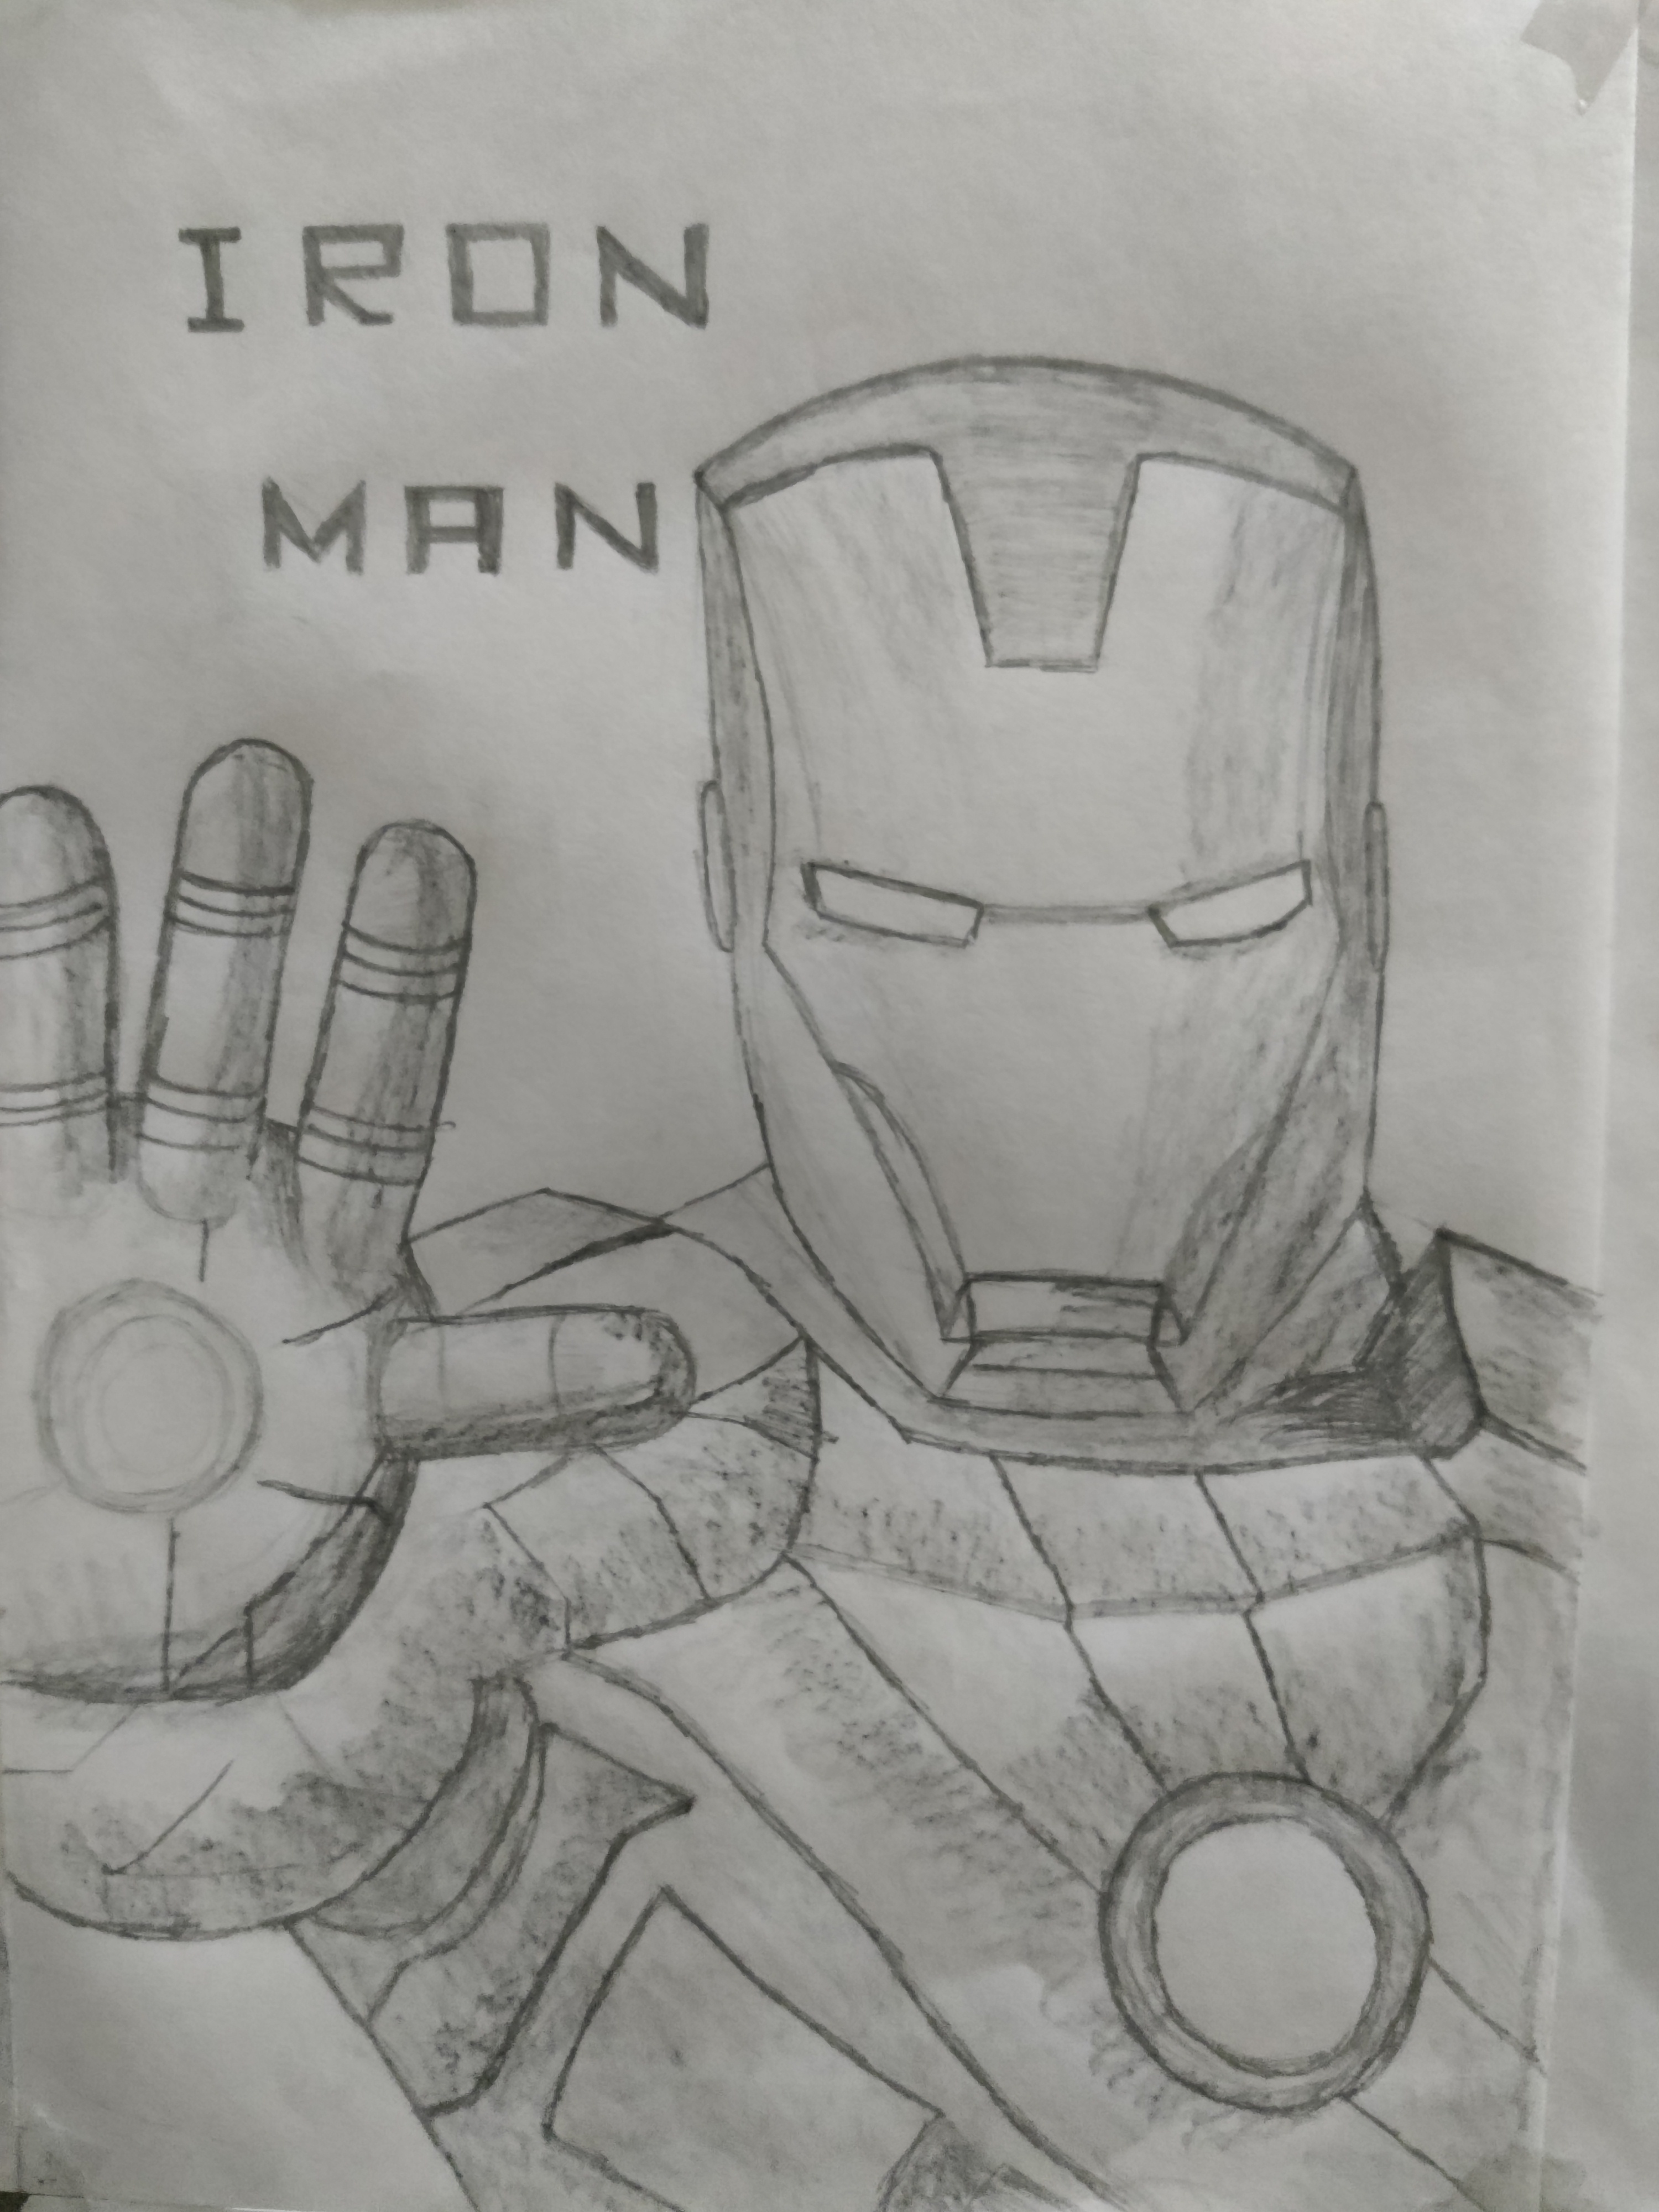 IRON
MAN